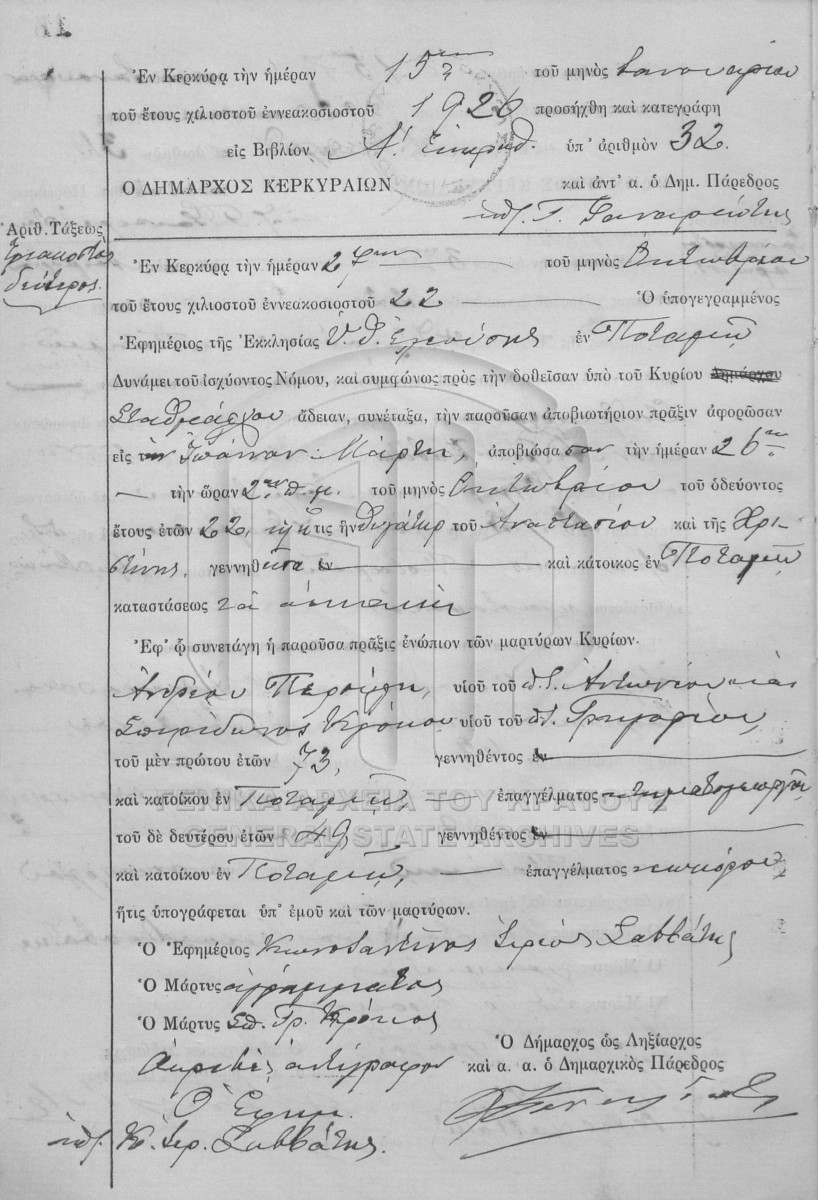 Ἐν Κερκύρᾳ τὴν ἡμέραν 15ην τοῦ μηνὸς Ἰανουαρίου
τοῦ ἔτους χιλιοστοῦ ἐννεακοσιοστοῦ 1926 προσήχθη καὶ κατεγράφη
εἰς Βιβλίον Α΄. ὑπ' ἀριθμὸν 32.
Ο ΔΗΜΑΡΧΟΣ ΚΕΡΚΥΡΑΙΩΝ καὶ ἀντ' α. ὁ Δημ. Πάρεδρος
Γ.
Ἀριθ. Τάξεως
Τριακοστὸς
δεύτερος.
Ἐν Κερκύρᾳ τὴν ἡμέραν 27ην τοῦ μηνὸς Ὀκτωβρίου
τοῦ ἔτους χιλιοστοῦ ἐννεακοσιοστοῦ 22 Ὁ ὑπογεγραμμένος
Ἐφημέριος τῆς Ἐκκλησίας Ὑ. Θ. Ἐλεούσης ἐν Ποταμῷ
Δυνάμει τοῦ ἰσχύοντος Νόμου, καὶ συμφώνως πρὸς τὴν δοθεῖσαν ὑπὸ τοῦ Κυρίου Δημάρχου
Σταθμάρχου ἄδειαν, συνέταξα, τὴν παροῦσαν ἀποβιωτήριον πρᾶξιν ἀφορῶσαν
εἰς τὴν Ἰωάνναν Μάρτη, ἀποβιώσασαν τὴν ἡμέραν 26ην
τὴν ὥραν 2αν π.μ. τοῦ μηνὸς Ὀκτωβρίου τοῦ ὁδεύοντος
ἔτους ἐτῶν 22, ἥτις ἦν θυγάτηρ τοῦ Ἀναστασίου καὶ τῆς Χρι-
στίνης, γεννηθεῖσα ἐν καὶ κάτοικος ἐν Ποταμῷ
καταστάσεως τὰ οἰκιακὰ
Ἐφ' ᾧ συνετάγη ἡ παροῦσα πρᾶξις ἐνώπιον τῶν μαρτύρων Κυρίων.
Ἀνδρέου υἱοῦ τοῦ π. Ἀντωνίου καὶ
Σπυρίδωνος Κρόκου υἱοῦ τοῦ π. Γρηγορίου,
τοῦ μὲν πρώτου ἐτῶν 73, γεννηθέντος ἐν
καὶ κατοίκου ἐν Ποταμῷ, ἐπαγγέλματος κτηματογεωργοῦ,
τοῦ δὲ δευτέρου ἐτῶν 49 γεννηθέντος ἐν
καὶ κατοίκου ἐν Ποταμῷ, ἐπαγγέλματος νεωκόρου
ἥτις ὑπογράφεται ὑπ' ἐμοῦ καὶ τῶν μαρτύρων.
Ὁ Ἐφημέριος Κωνσταντῖνος Ἱερεὺς Σαββάτης
Ὁ Μάρτυς ἀγράμματος
Ὁ Μάρτυς Σπ. Γρ. Κρόκος
Ὁ Δήμαρχος ὡς Ληξίαρχος
Ἀκριβὲς ἀντίγραφον καὶ α. α. ὁ Δημαρχικὸς Πάρεδρος
Ὁ Ἐφημ.
ὑπ. Κ. Ἱερ. Σαββάτης.
ΓΕΝΙΚΑ ΑΡΧΕΙΑ ΤΟΥ ΚΡΑΤΟΥΣ
GENERAL STATE ARCHIVES